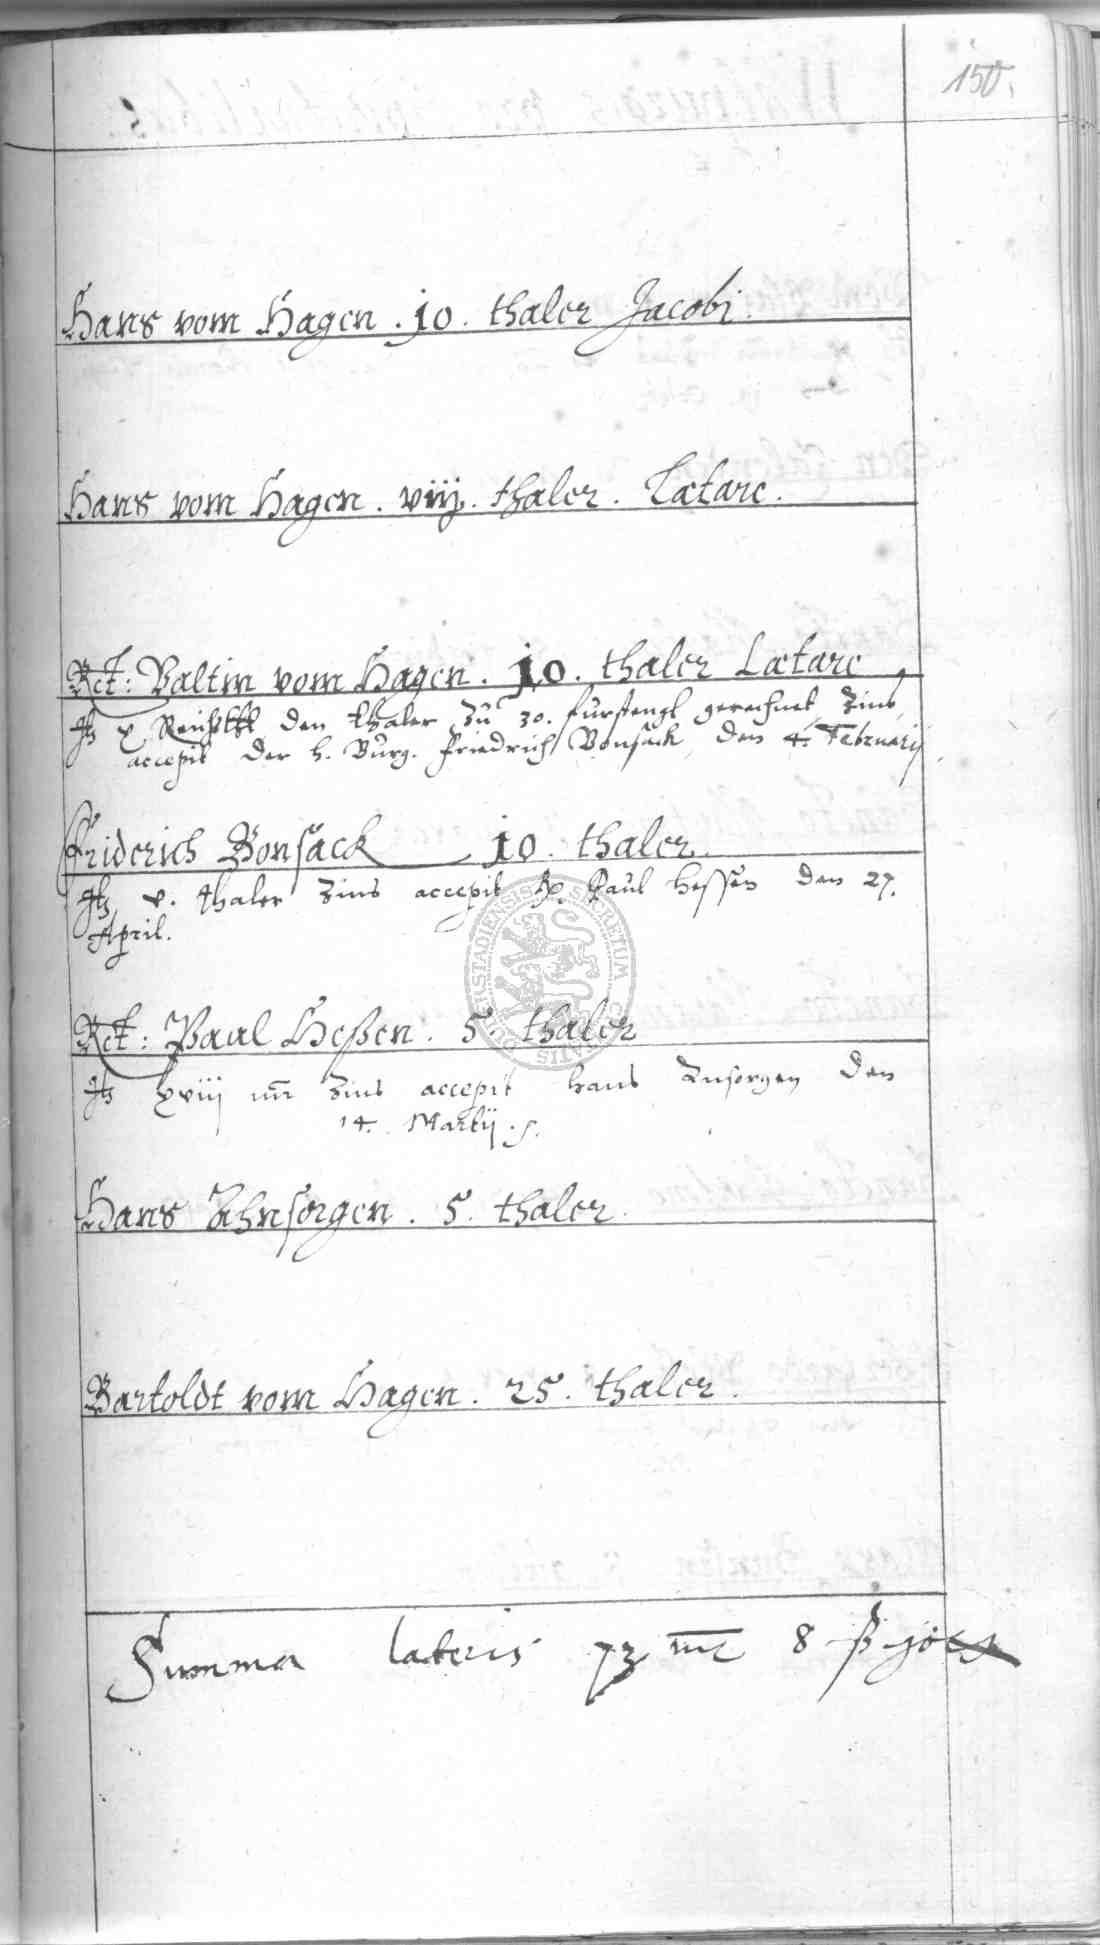 150.
Hans vom Hagen . 10 . thaler Jacobi .
Hans vom Hagen . viij . thaler . Lætare .
Rct: Valtin vom Hagen . 10 . thaler Lætare
den thaler zu 30. fürstengl gerechnet Zins
accepit der h. Burg. Friedrich Bonsack den 4. Februarij
Friderich Bonsack 10 . thaler .
v . thaler Zins accepit Paul Hessen den 27.
April.
Rct: Paul Heßen . 5 . thaler
xviij mr Zins accepit Hans Znsorgen den
14. Martij .
Hans Zhnsorgen . 5 . thaler .
Bartoldt vom Hagen . 25 . thaler .
Summa lateris 73 mr 8 ß
SECRETUM CIVITATIS DUDERSTADIENSIS